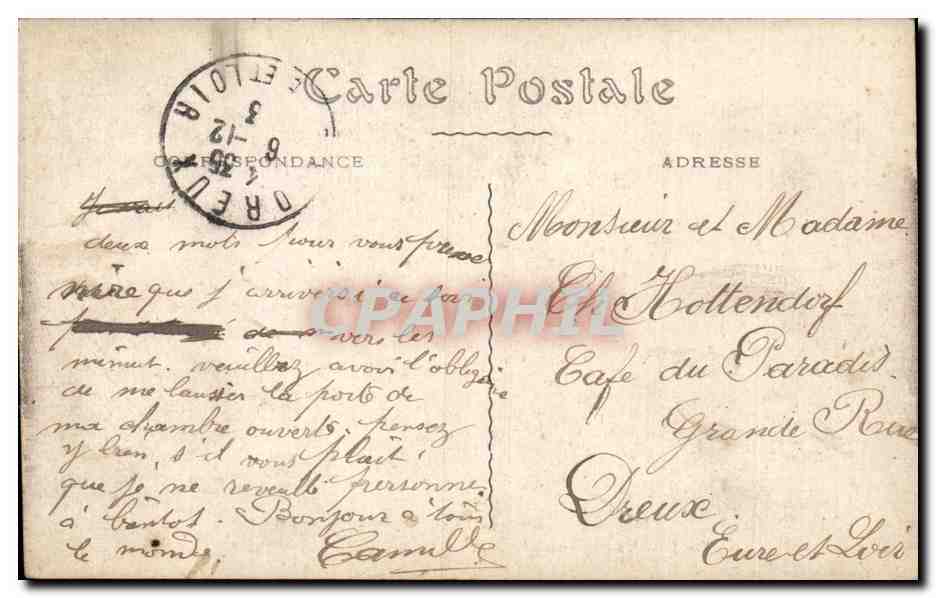 Carte Postale
CORRESPONDANCE
ADRESSE
DREUX
ET LOIR
CPAPHIL
deux mots pour vous preve
nire que j'arriverai ce soir
de vers les
minuit. veuillez avoir l'oblige
de me laisser la porte de
ma chambre ouverte. pensez
y bien, s'il vous plait!
que je ne reveille personne.
à bientot. Bonjour a tous
le monde,
Camille
Monsieur et Madame
Ch Hottendorf
Cafe du Paradis.
Grande Rue
Dreux.
Eure et Loir